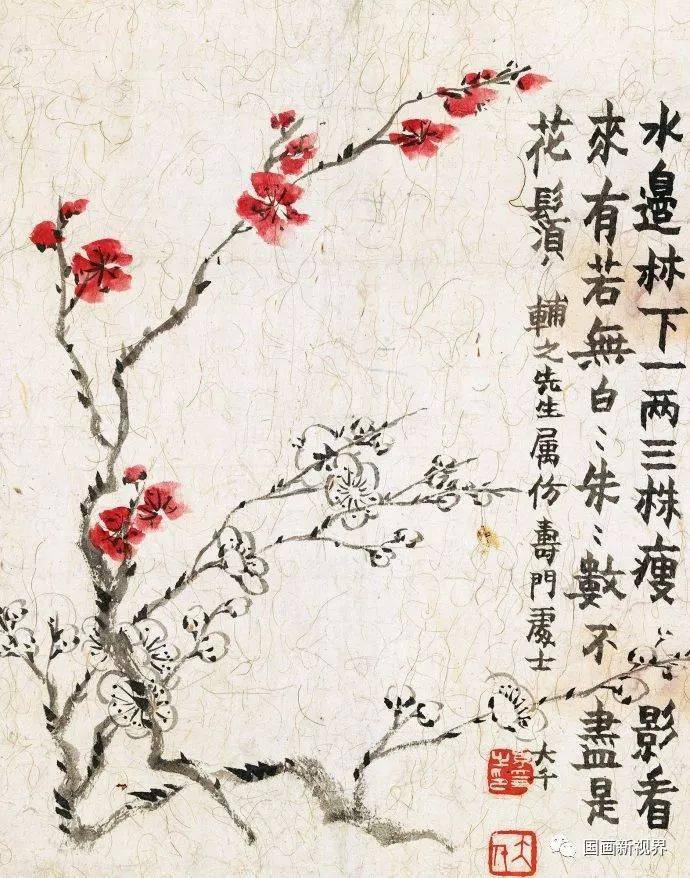 水邊林下一两三株瘦影看
來有若無白〻朱〻數不盡是
花鬚 輔之先生属仿壽門處士
大千
国画新视界